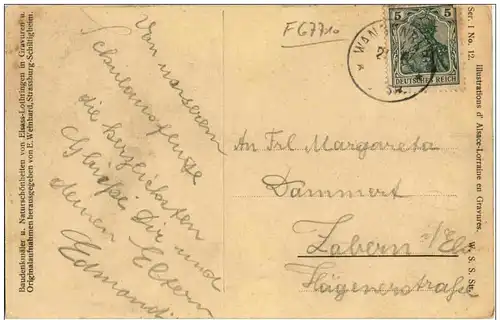 Baudenkmäler u. Naturschönheiten von Elsass-Lothringen in Gravuren u.
Originalaufnahmen herausgegeben von E. Weinhard, Strassburg-Schiltigheim.
F6771a
Von unserem
Schulausfluge
die herzlichsten
Grüße Dir und
deinen Eltern
Edmond.
5 5
DEUTSCHES REICH
An Frl Margareta
Dammert
Zabern i/Els
Ser. I No. 12. Illustrations d'Alsace-Lorraine en Gravures. W. S. S. Str.